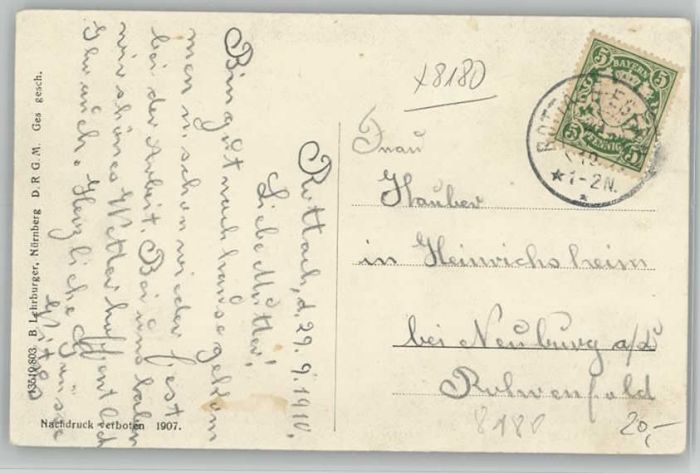 Rottach, d. 29. 9. 1910.
Liebe Mutter!
Bin gut nach hause gekom
men u. schon wieder fest
bei der Arbeit. Bei uns haben
wir schönes Wetter hoffentlich
Ihr auch. Herzliche Grüsse
x8180
Frau
Hauber
in Heinrichsheim
bei Neuburg a/d
8180
20,-
BAYERN
5 5
5 5
PFENNIG
ROTTACH-EG
1-2N.
13519/803 B. Lehrburger, Nürnberg D. R. G. M. Ges gesch.
Nachdruck verboten 1907.